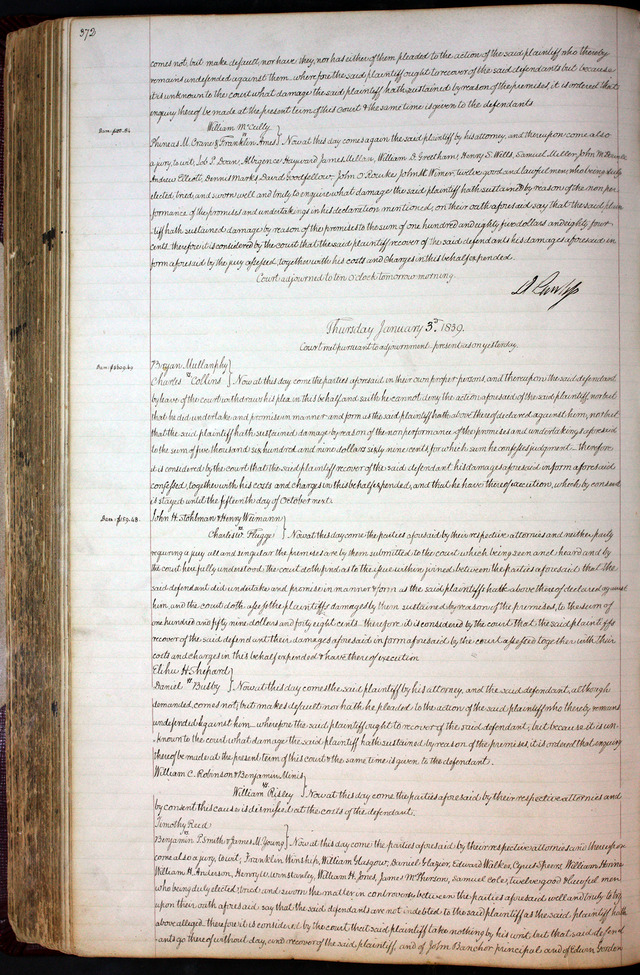 372
comes not, but make default, nor have they, nor has either of them pleaded to the action of the said plaintiff who thereby
remains undefended against them wherefore the said plaintiff ought to recover of the said defendants but because
it is unknown to the court what damage the said plaintiff hath sustained by reason of the premises, it is ordered that
enquiry thereof be made at the present term of this Court & the same time is given to the defendants
William McCully
Phineas M. Crane & Franklin Ames } Now at this day comes again the said plaintiff by his attorney, and thereupon come also
a jury, to wit, Job P. Doan, Hayward James Mellan, William D. Grettham, Henry S. Wells, Samuel Miller, John M.
Andrew Elliott, Dennis Marks David Goodfellow, John O'Rourke John M. Wimer, twelve good and lawful men, who being duly
elected, tried, and sworn well and truly to enquire what damage the said plaintiff hath sustained by reason of the non per-
formance of the promises and undertakings in his declaration mentioned, on their oath aforesaid say that the said plain
tiff hath sustained damage by reason of the premises to the sum of one hundred and eighty five dollars and eighty four
cents. therefore it is considered by the court that the said plaintiff recover of the said defendants his damages aforesaid in
form aforesaid by the jury assessed, together with his costs and charges in this behalf expended.
Court adjourned to ten O'clock tomorrow morning
Thursday January 3d. 1839.
Court met pursuant to adjournment. present as on yesterday.
Dam. $5609.69
Bryan Mullanphy
vs
Charles Collins } Now at this day come the parties aforesaid in their own proper persons, and thereupon the said defendant
by leave of the court withdraws his plea in this behalf and saith he cannot deny the action aforesaid of the said plaintiff, nor but
that he did undertake and promise in manner and form as the said plaintiff hath above thereof declared against him, nor but
that the said plaintiff hath sustained damage by reason of the nonperformance of the promises and undertakings aforesaid
to the sum of five thousand six hundred and nine dollars sixty nine cents for which sum he confesses judgment — therefore
it is considered by the court that the said plaintiff recover of the said defendant his damages aforesaid in form aforesaid
confessed, together with his costs and charges in this behalf expended, and that he have thereof execution, which by consent
is stayed until the fifteenth day of October next.
Dam. $159.48.
John H. Stohlman & Henry Weimann
vs
Charles Flugge } Now at this day come the parties aforesaid by their respective attornies and neither party
requiring a jury all and singular the premises are by them submitted to the court which being seen and heard and by
the court here fully understood, the court doth find as to the issue within joined between the parties aforesaid that the
said defendant did undertake and promise in manner & form as the said plaintiffs hath above thereof declared against
him, and the court doth assess the plaintiffs damages by them sustained by reason of the premises, to the sum of
one hundred and fifty nine dollars and forty eight cents. therefore it is considered by the court that the said plaintiffs
recover of the said defendant their damages aforesaid in form aforesaid by the court assessed together with their
costs and charges in this behalf expended & have thereof execution
Elihu H. Shepard
vs
Daniel Busby } Now at this day comes the said plaintiff by his attorney, and the said defendant, although
demanded comes not, but makes default nor hath he pleaded to the action of the said plaintiff who thereby remains
undefended against him — wherefore the said plaintiff ought to recover of the said defendant; but because it is un-
known to the court what damage the said plaintiff hath sustained by reason of the premises, it is ordered that enquiry
thereof be made at the present term of this court & the same time is given to the defendant.
William C. Robinson & Benjamin Minis
vs
William Risley } Now at this day come the parties aforesaid by their respective attornies and
by consent this cause is dismissed at the costs of the defendant.
Timothy Reed
Benjamin P. Smith & James M. Young } Now at this day come the parties aforesaid by their respective attornies and thereupon
come also a jury, to wit, Franklin Winship, William Glasgow, Daniel Glazier, Edward Walker, Cyrus Speers, William
William H. Anderson, Henry W. William H. Jones, James McPherson, Samuel Cole, twelve good & lawful men
who being duly elected, tried and sworn the matter in controversy between the parties aforesaid well and truly to try
upon their oath aforesaid say that the said defendants are not indebted to the said plaintiff as the said plaintiff hath
above alleged. therefore it is considered by the court that said plaintiff take nothing by his writ, but that said defend
ants go thereof without day, and recover of the said plaintiff, and of John Banchor principal and of Edwin Gordon